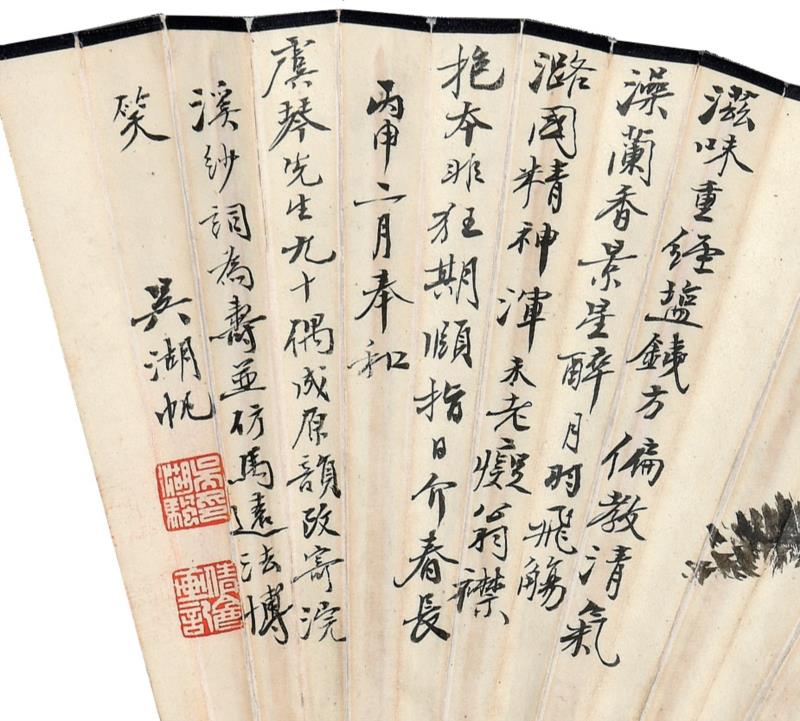 滋味重經塩銕方偏教清氣
澡蘭香景星醉月时飛觴
潞國精神渾未老癯翁襟
抱本非狂期頤指日介春長
丙申二月奉和
虞琴先生九十偶成原韻改寄浣
溪紗詞為壽並仿馬遠法博
笑
吳湖帆
吳印湖颿
倩盦畫記